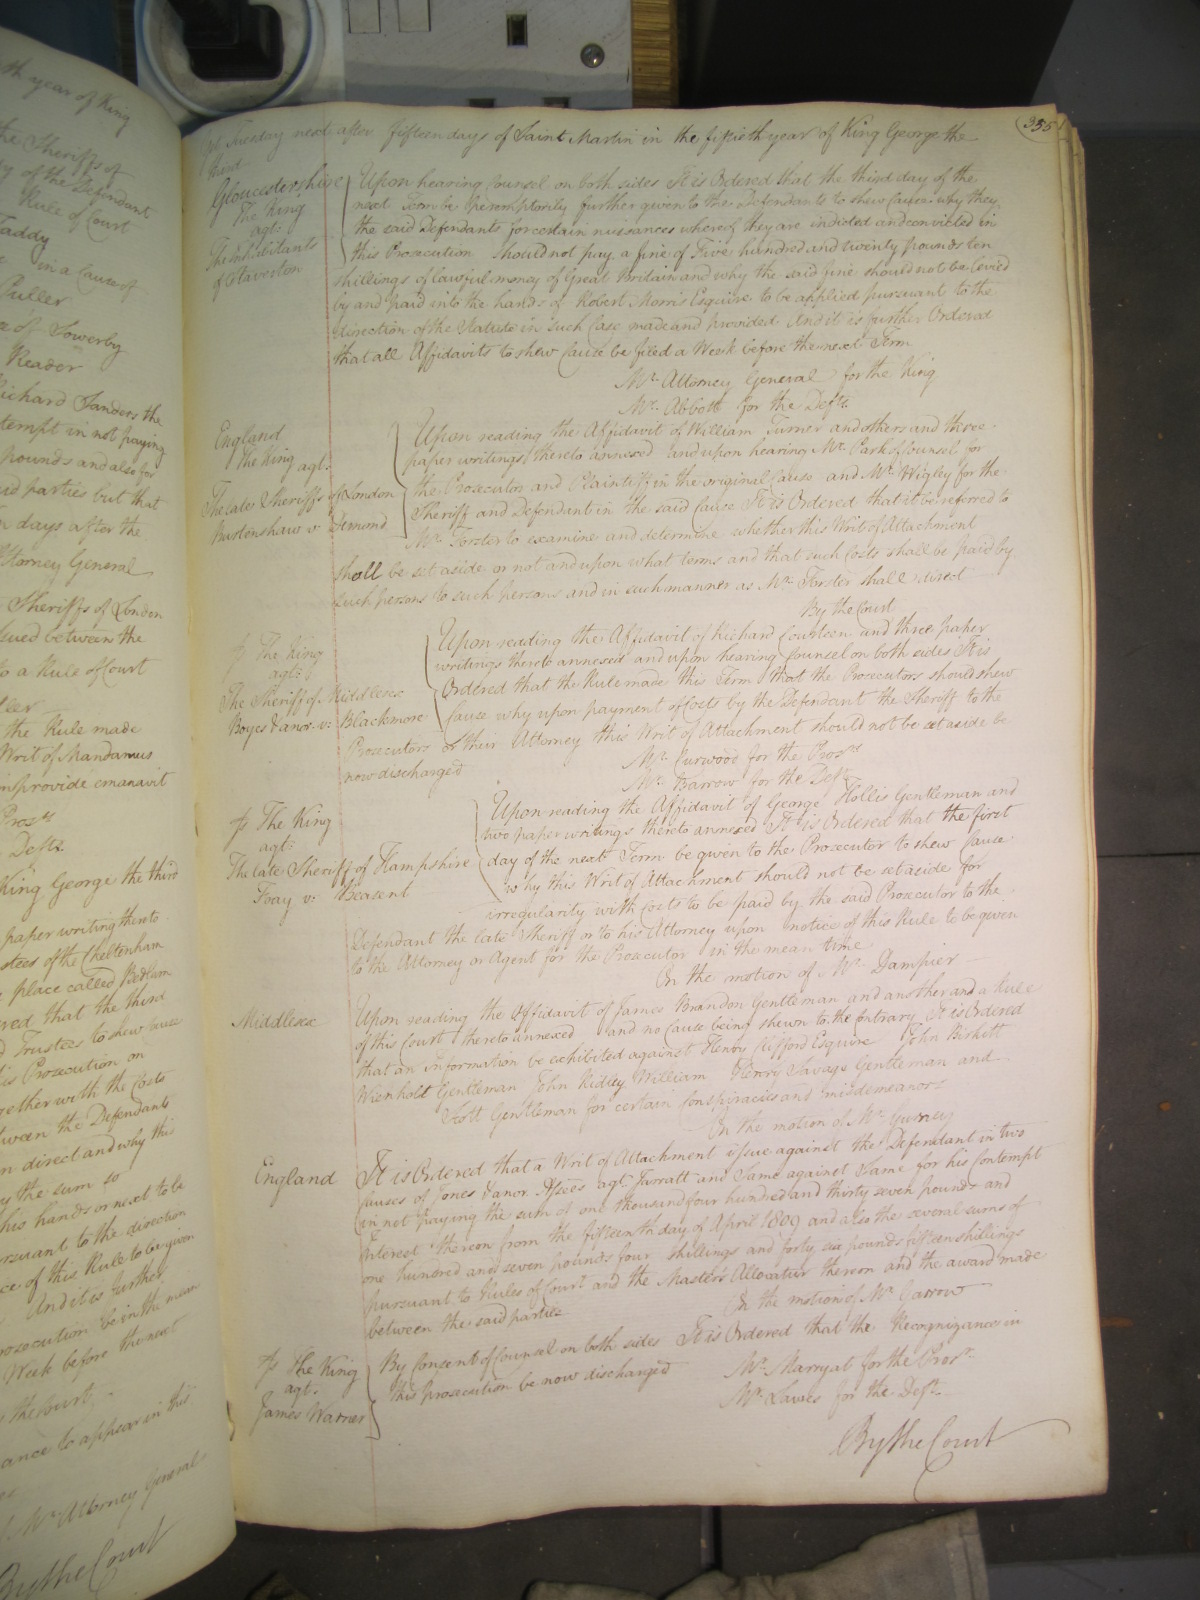 355
Tuesday next after fifteen days of Saint Martin in the fiftieth year of King George the
third
Gloucestershire
The King
agt.
The Inhabitants
of Staverton
Upon hearing Counsel on both sides It is Ordered that the third day of the
next Term be peremptorily further given to the Defendants to shew Cause why they
the said Defendants for certain nuisances whereof they are indicted and convicted in
this Prosecution should not pay a fine of Five hundred and twenty pounds ten
shillings of lawful money of Great Britain and why the said fine should not be levied
by and paid into the hands of Robert Morris Esquire to be applied pursuant to the
direction of the Statute in such Case made and provided And it is further Ordered
that all Affidavits to shew Cause be filed a Week before the next Term
Mr. Attorney General for the King
Mr. Abbott for the Defts.
England
The King agt.
The late Sheriffs of London
Burtenshaw v.
Upon reading the Affidavit of William Turner and others and three
paper writings thereto annexed and upon hearing Mr. Park of Counsel for
the Prosecutor and Plaintiff in the original Cause and Mr. Wigley for the
Sheriff and Defendant in the said Cause It is Ordered that it be referred to
Mr. Forster to examine and determine whether this Writ of Attachment
shall be set aside or not and upon what terms and that such Costs shall be paid by
such persons to such persons and in such manner as Mr. Forster shall direct
By the Court
The King
agt.
The Sheriff of Middlesex
Boyes & anor. v. Blackmore
Upon reading the Affidavit of Richard Courteen and three paper
writings thereto annexed and upon hearing Counsel on both sides It is
Ordered that the Rule made this Term that the Prosecutors should shew
Cause why upon payment of Costs by the Defendant the Sheriff to the
Prosecutors or their Attorney this Writ of Attachment should not be set aside be
now discharged
Mr. Curwood for the Prosrs
Mr. Barrow for the Deft.
The King
agt.
The late Sheriff of Hampshire
v.
Upon reading the Affidavit of George Hollis Gentleman and
two paper writings thereto annexed It is Ordered that the first
day of the next Term be given to the Prosecutor to shew Cause
why this Writ of Attachment should not be set aside for
irregularity with Costs to be paid by the said Prosecutor to the
Defendant the late Sheriff or to his Attorney upon notice of this Rule to be given
to the Attorney or Agent for the Prosecutor in the mean time
On the motion of Mr. Dampier
Middlesex
Upon reading the Affidavit of James Brandon Gentleman and another and a Rule
of this Court thereto annexed and no Cause being shewn to the Contrary It is Ordered
that an information be exhibited against Henry Clifford Esquire John Biskett
Wienholt Gentleman John Ridley William Henry Savage Gentleman and
Scott Gentleman for certain Conspiracies and misdemeanors
On the motion of Mr. Gurney
England
It is Ordered that a Writ of Attachment issue against the Defendant in two
Causes of Jones & anor. Assees agt. Jarratt and Same against Same for his Contempt
in not paying the sum of one thousand four hundred and thirty seven pounds and
Interest thereon from the fifteenth day of April 1809 and also the several sums of
one hundred and seven pounds four shillings and forty six pounds fifteen shillings
pursuant to Rules of Court and the Master's Allocatur thereon and the award made
between the said parties
On the motion of Mr. Garrow
The King
agt.
James Warner
By Consent of Counsel on both sides It is Ordered that the Recognizance in
this prosecution be now discharged
Mr. Marryat for the Prosr.
Mr. Lawes for the Deft.
By the Court
th year of King
the Sheriffs of
of the Defendant
Rule of Court
Taddy
in a Cause of
Puller
of Sowerby
Reader
Richard Sanders the
tempt in not paying
pounds and also for
parties but that
days after the
Attorney General
Sheriffs of London
sued between the
to a Rule of Court
the Rule made
Writ of Mandamus
improvide emanavit
Prosrs
Defts.
King George the third
paper writing thereto
of the Cheltenham
place called Bedlam
that the third
Trustees to shew cause
Prosecution on
together with the Costs
between the Defendants
direct and why this
the sum so
his hands or next to be
pursuant to the direction
of this Rule to be given
And it is further
prosecution be in the mean
Week before the next
the Court
ance to appear in this
Mr. Attorney General
By the Court